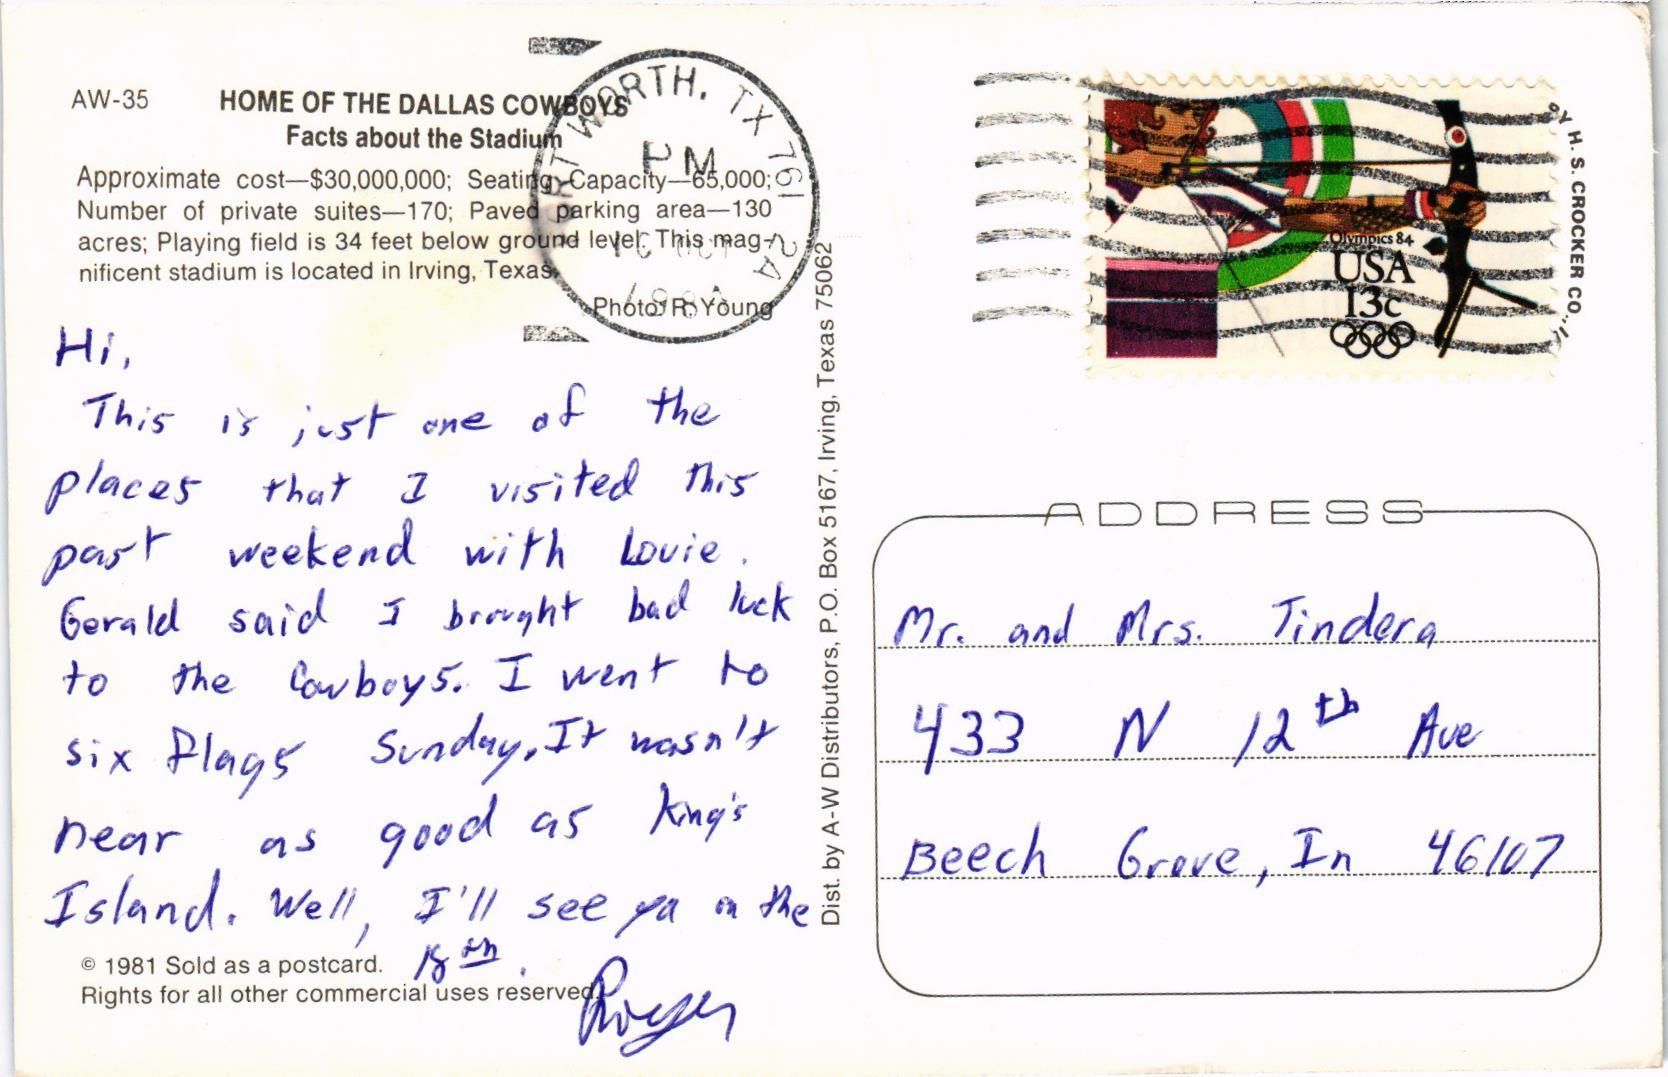 AW-35 HOME OF THE DALLAS COWBOYS
Facts about the Stadium
Approximate cost—$30,000,000; Seating Capacity—65,000;
Number of private suites—170; Paved parking area—130
acres; Playing field is 34 feet below ground level. This mag-
nificent stadium is located in Irving, Texas.
Photo: R. Young
WORTH, TX 761
PM
Hi,
This is just one of the
places that I visited this
past weekend with Louie.
Gerald said I brought bad luck
to the Cowboys. I went to
six flags Sunday. It wasn't
near as good as King's
Island. Well, I'll see ya on the
18th.
Roger
© 1981 Sold as a postcard.
Rights for all other commercial uses reserved.
Dist. by A-W Distributors, P.O. Box 5167, Irving, Texas 75062
Olympics 84
USA
13c
BY H. S. CROCKER CO.,
ADDRESS
Mr. and Mrs. Tindera
433 N 12th Ave
Beech Grove, In 46107